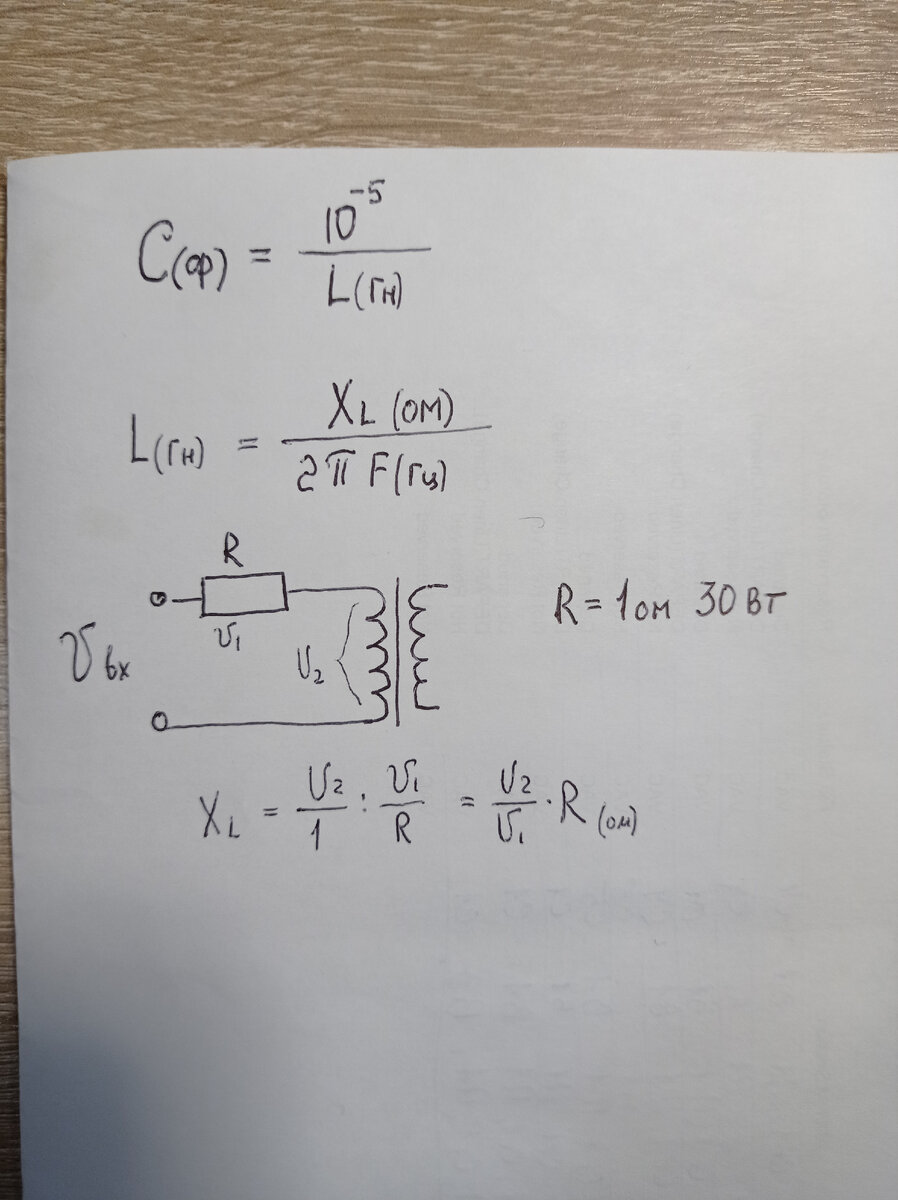 C(ф) = 10⁻⁵ / L(Гн)
L(Гн) = X_L (ом) / 2π F(Гц)
R
U₁
U вх
U₂
R = 1 ом 30 Вт
X_L = U₂/1 : U₁/R = U₂/U₁ · R (ом)